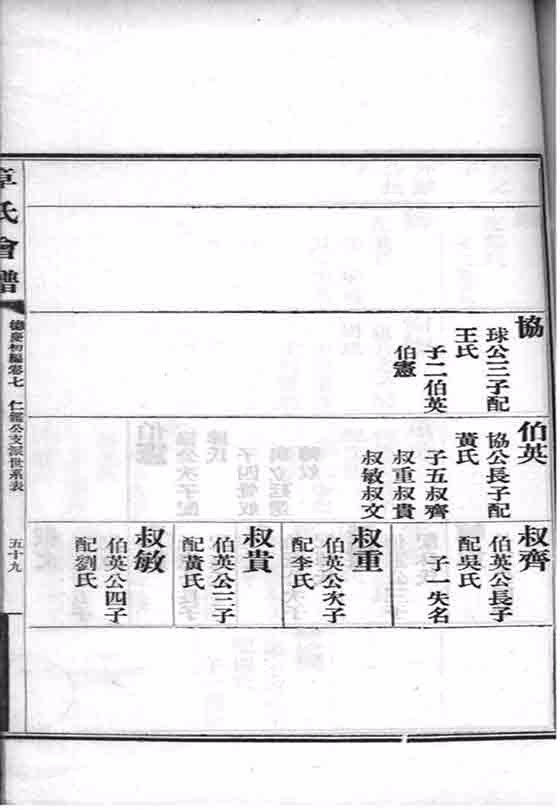 協
球公三子配
王氏
子二伯英
伯憲
伯英
協公長子配
黃氏
子五叔齊
叔重叔貴
叔敏叔文
叔齊
伯英公長子
配吳氏
子一失名
叔重
伯英公次子
配李氏
叔貴
伯英公三子
配黃氏
叔敏
伯英公四子
配劉氏
章氏會譜
德慶初編卷七
仁
公支派世系表
五十九